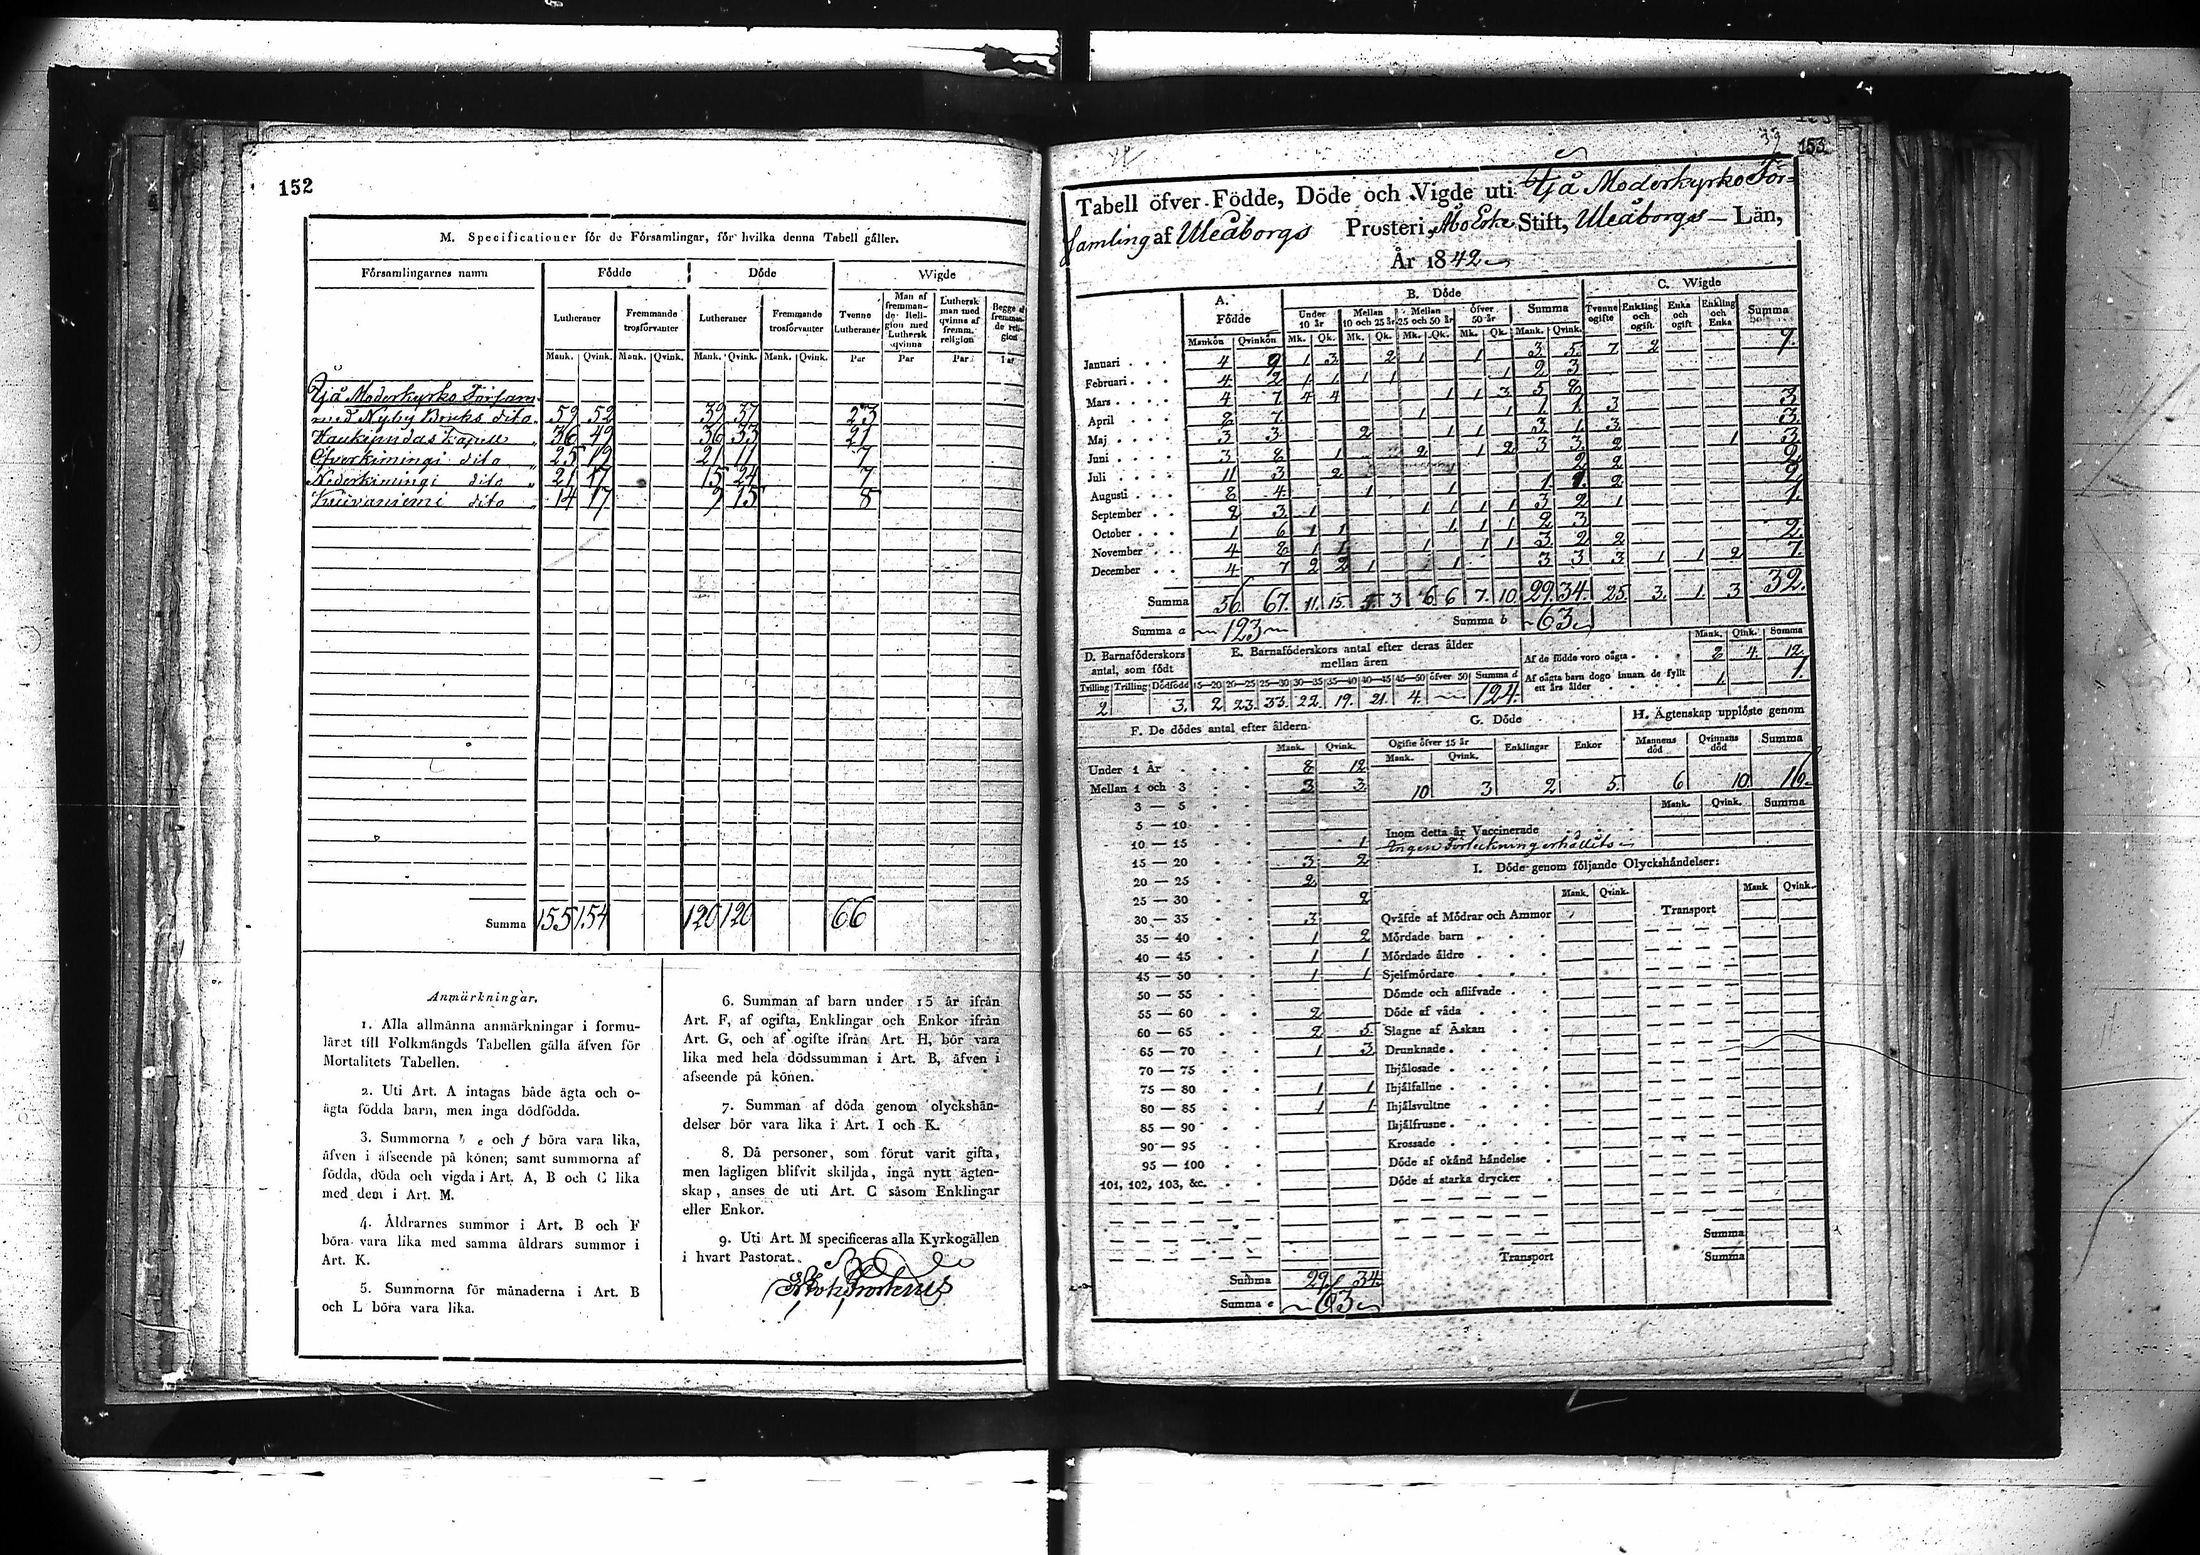 152
M. Specificationer för de Församlingar, för hvilka denna Tabell gäller.
Församlingarnes namn Födde Döde Wigde
Lutheraner Fremmande trosförvanter Lutheraner Fremmande trosförvanter Tvenne Lutheraner Man af fremmande Religion med Luthersk qvinna Luthersk man med qvinna af fremm. religion Begge af fremmande religion
Mank. Qvink. Mank. Qvink. Mank. Qvink. Mank. Qvink. Par Par Par Par
Ijå Moderkyrko Försam
med Nyby Bruks dito 59 52 39 37 23
Haukipudas Kapell 36 49 36 33 21
Öfverkimingi dito 25 19 21 11 7
Nederkimingi dito 21 17 15 24 7
Kuivaniemi dito 14 17 9 15 8
Summa 155 154 120 120 66
Anmärkningar.
1. Alla allmänna anmärkningar i formu-
läret till Folkmängds Tabellen gälla äfven för
Mortalitets Tabellen.
2. Uti Art. A intagas både ägta och o-
ägta födda barn, men inga dödfödda.
3. Summorna b e och f böra vara lika,
äfven i afseende på könen; samt summorna af
födda, döda och vigda i Art. A, B och C lika
med dem i Art. M.
4. Åldrarnes summor i Art. B och F
böra vara lika med samma åldrars summor i
Art. K.
5. Summorna för månaderna i Art. B
och L böra vara lika.
6. Summan af barn under 15 år ifrån
Art. F, af ogifta, Enklingar och Enkor ifrån
Art. G, och af ogifte ifrån Art. H, bör vara
lika med hela dödssumman i Art. B, äfven i
afseende på könen.
7. Summan af döda genom olyckshän-
delser bör vara lika i Art. I och K.
8. Då personer, som förut varit gifta,
men lagligen blifvit skiljda, ingå nytt ägten-
skap, anses de uti Art. C såsom Enklingar
eller Enkor.
9. Uti Art. M specificeras alla Kyrkogällen
i hvart Pastorat.
79 153
Tabell öfver Födde, Döde och Vigde uti Ijå Moderkyrko För-
samling af Uleåborgs Prosteri, Åbo Erke Stift, Uleåborgs Län,
År 1842
A. Födde B. Döde C. Wigde
Under 10 år Mellan 10 och 25 år Mellan 25 och 50 år Öfver 50 år Summa Tvenne ogifte Enkling och ogift Enka och ogift Enkling och Enka Summa
Mankön Qvinkön Mk. Qk. Mk. Qk. Mk. Qk. Mk. Qk. Mank. Qvink.
Januari 4 9 1 3 2 1 1 3 5 7 2 9.
Februari 4 2 1 1 1 1 1 2 3
Mars 4 7 4 4 1 1 3 5 8
April 8 7 1 1 1 1 3 3
Maj 3 3 2 1 1 3 1 3 3.
Juni 3 8 1 2 1 2 3 3 2 1 3
Juli 11 3 2 2 2 2
Augusti 8 4 1 1 1 1 2 2
September 2 3 1 1 1 1 1 3 2 1 1.
October 1 6 1 1 1 1 1 2 3
November 4 8 1 1 1 1 1 3 2 2 2.
December 4 7 2 2 1 1 3 3 3 1 1 2 7.
Summa 56 67. 11. 15. 5. 3 6 6 7. 10 29. 34. 25. 3. 1. 3 32.
Summa a 123 Summa b 63
D. Barnaföderskors antal, som födt E. Barnaföderskors antal efter deras ålder mellan åren
Mank. Qink. Summa
Af de födde voro oägta 8 4. 12.
Af oägta barn dogo innan de fyllt ett års ålder 1. 1.
Tvilling Trilling Dödfödd 15—20 20—25 25—30 30—35 35—40 40—45 45—50 öfver 50 Summa d
2 3. 2 23. 33. 22. 19. 21. 4. 124.
F. De dödes antal efter åldern G. Döde H. Ägtenskap upplöste genom
Mank. Qvink. Ogifte öfver 15 år Enklingar Enkor Mannens död Qvinnans död Summa
Mank. Qvink.
10 3 2 5. 6 10 16.
Under 1 År 8 12
Mellan 1 och 3 3 3
3 — 5
5 — 10
10 — 15 1
15 — 20 3 2
20 — 25 2
25 — 30 2
30 — 35 3
35 — 40 1 2
40 — 45 1 1
45 — 50 1 1
50 — 55
55 — 60 2
60 — 65 2 5
65 — 70 1 3
70 — 75
75 — 80 1 1
80 — 85 1 1
85 — 90
90 — 95
95 — 100
101, 102, 103, &c.
Summa 29 34
Summa e 63
Mank. Qvink. Summa
Inom detta år Vaccinerade
Ingen Förteckning erhållits
I. Döde genom följande Olyckshändelser:
Mank. Qvink. Mank Qvink.
Qväfde af Mödrar och Ammor Transport
Mördade barn
Mördade äldre
Sjelfmördare
Dömde och aflifvade
Döde af våda
Slagne af Åskan
Drunknade
Ihjälosade
Ihjälfallne
Ihjälsvultne
Ihjälfrusne
Krossade
Döde af okänd händelse
Döde af starka drycker
Summa
Transport Summa